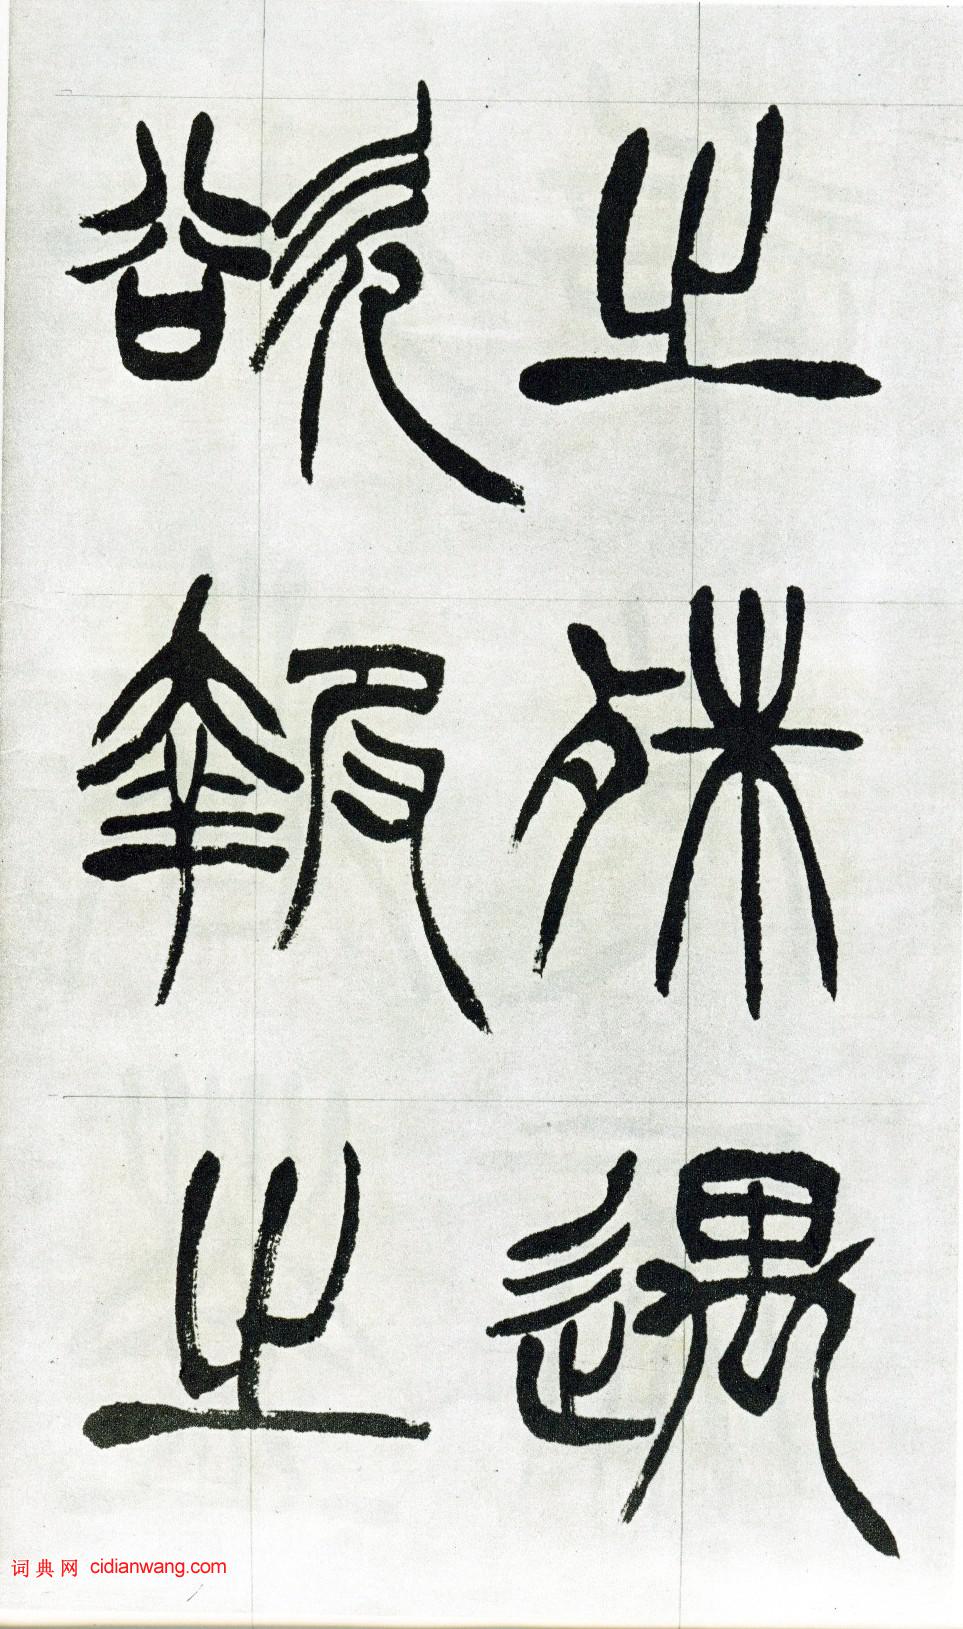 之殊遇
欲報之
词典网 cidianwang.com